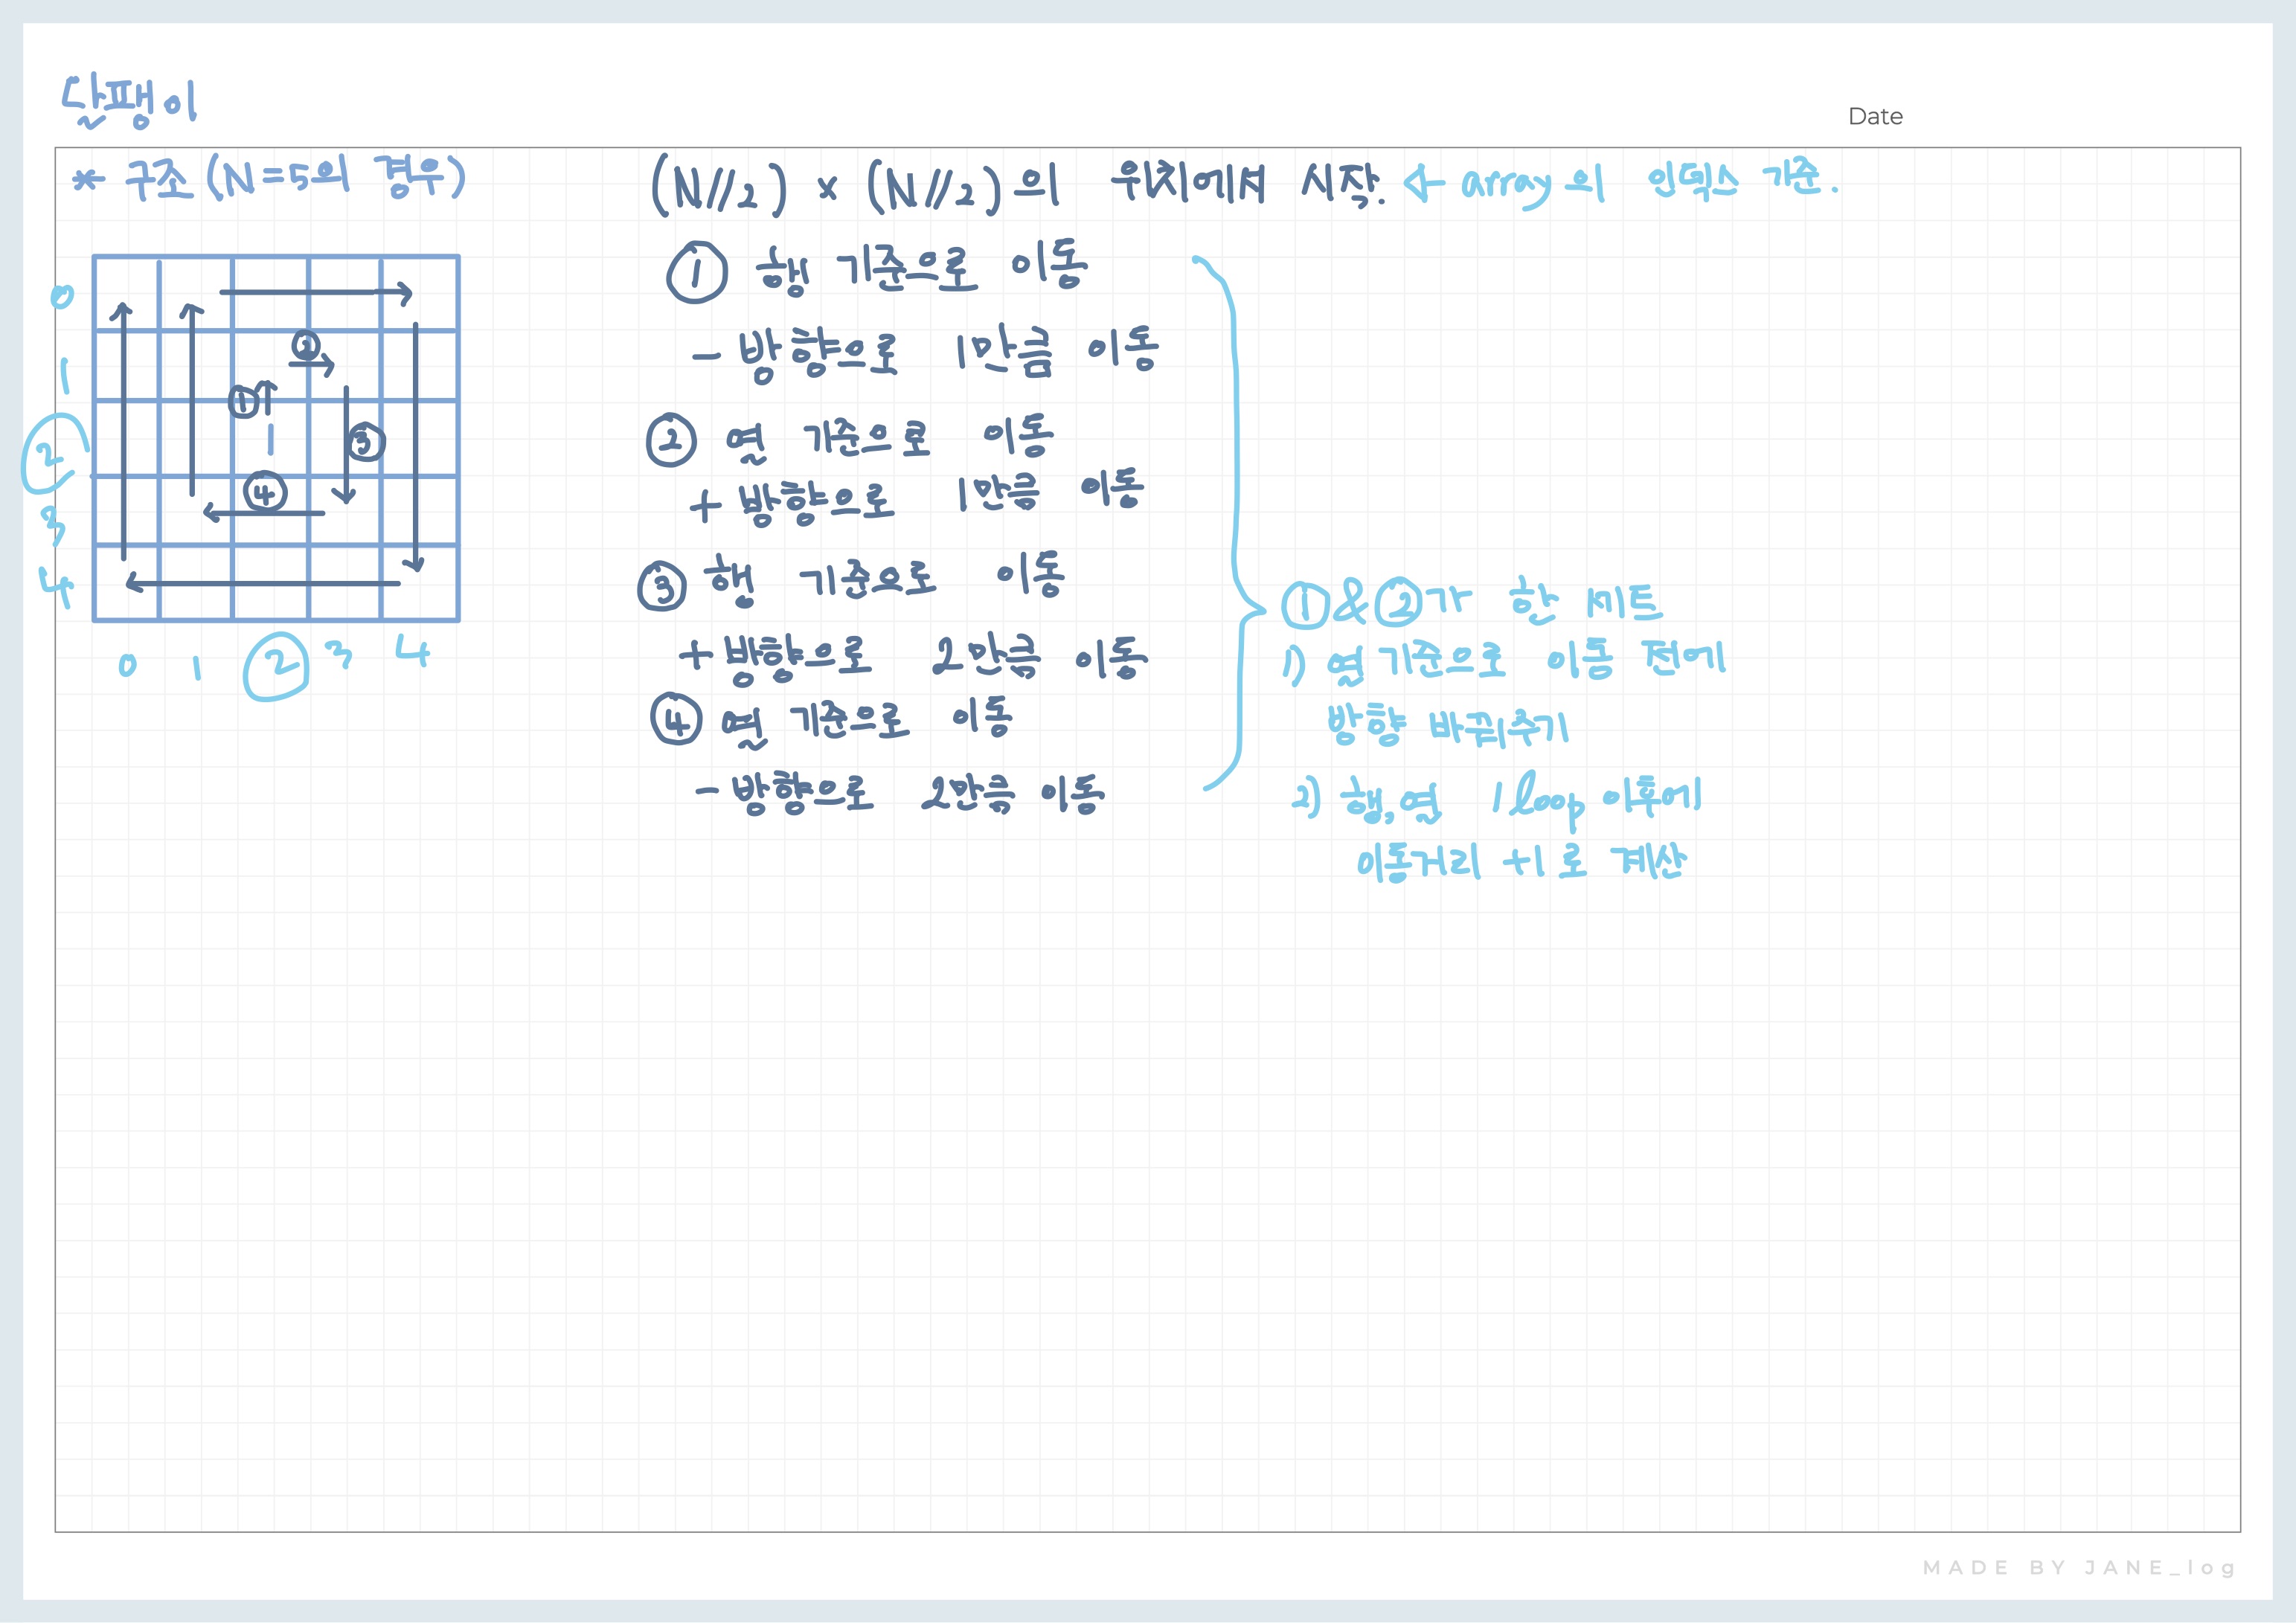 단팽이
Date
* 구조 (N=5의 경우)
(N//2) x (N//2)의 위치에서 시작. ← array의 인덱스 기준.
① 행 기준으로 이동
- 방향으로 1만큼 이동
② 열 기준으로 이동
+ 방향으로 1만큼 이동
③ 행 기준으로 이동
+ 방향으로 2만큼 이동
④ 열 기준으로 이동
- 방향으로 2만큼 이동
①&②가 한 세트
1) 열 기준으로 이동 전에
방향 바꿔주기
2) 행, 열 1 loop 이후에
이동거리 +1로 계산
0
1
2
3
4
② 
① 1 ③
④
0 1 2 3 4
MADE BY JANE_log